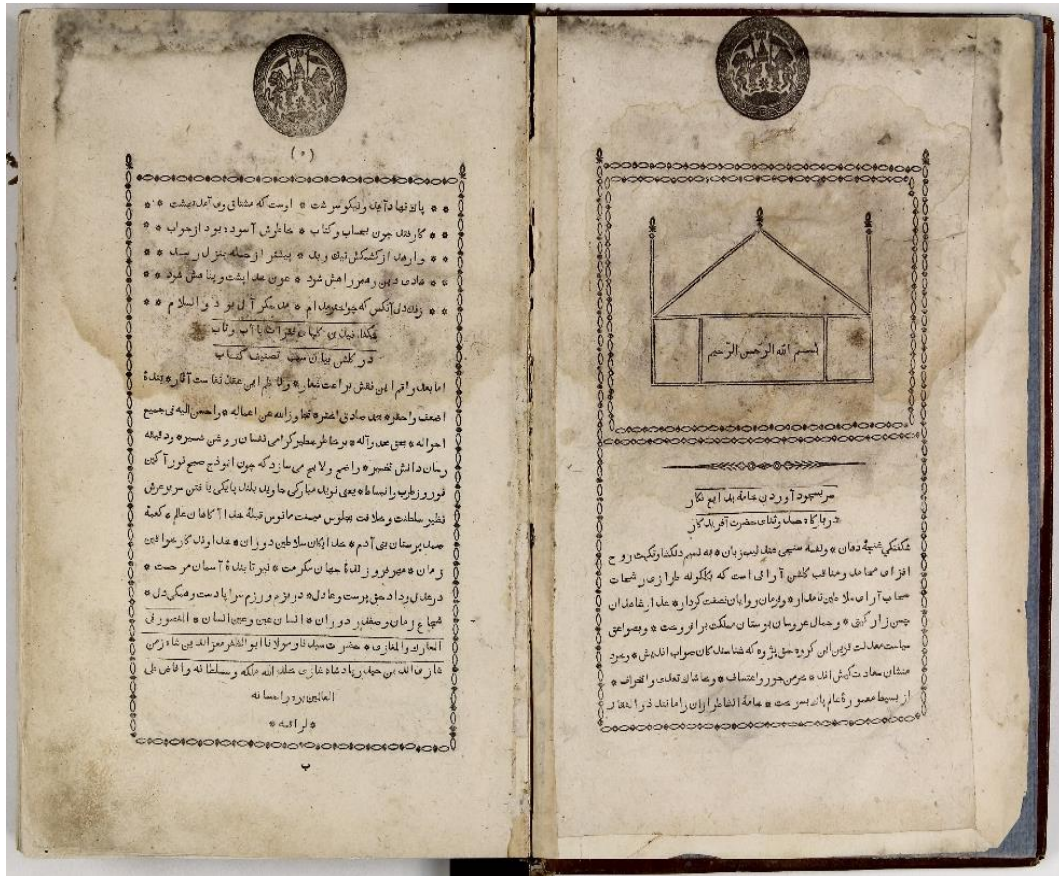 بسم الله الرحمن الرحيم
سر بسجود آوردن خامهٔ بدایع نگار
در بارگاه حمد و ثنای حضرت آفریدگار
شگفتگی غنچهٔ دهان * و نغمه سنجی عندلیب زبان * به نسیم دلکشا و نکهت روح
افزای محامد و مناقب گلشن آرائی است که بگلگونه طرازی رشحات
سحاب آرای سلاطین نامدار * و فرمان روایان نصفت کردار * عذار شاهدان
چمن زار گیتی * و جمال عروسان بوستان مملکت بر افروخت * و بصواعق
سیاست معدلت قرین این گروه حق پژوه که شناسندگان صواب اندیش * و خرد
منشان سعادت کیش اند * خرمن جور و اعتساف * و خاشاک تعدی و انحراف *
از بسیط معمورهٔ عالم پاک بسوخت * خامهٔ الفاظ طرازان را مانند ذو الفقار
(۵)
* * پاک نهاد آمد و نیکو سرشت * اوست که مشتاق وی آمد بهشت * *
* * کار فتد چون بحساب و کتاب * خاطرش آسوده بود از جواب * *
* * وارهد از کشمکش نیک و بد * پیشتر از جمله بمنزل رسد * *
* * هادی دین رهبر راهش شود * عون خدا پشت و پناهش شود * *
* * زنده دل آنکس که چو احمد ام * آل بود والسلام * *
در گلشن بیان سبب تصنیف کتاب
اما بعد راقم این نقش براعت شعار * و ناظم این عقد نفاست آثار * بندهٔ
اضعف و احقر * محمد صادق اختر * تجاوز الله عن اعماله * و احسن الیه فی جمیع
احواله * بحق محمد و آله * بر خاطر عطیر گرامی نفسان روشن ضمیر * و دلهای
دانش تخمیر * واضح و لایح می سازد که چون انموذج صبح نور آگین
نوروز طرب و انبساط * یعنی نوید مبارکی جاوید بلند پایگی یافتن سریر عرش
نظیر سلطنت و خلافت بجلوس میمنت مانوس قبلهٔ خدا آگاهان عالم * کعبهٔ
صمد پرستان بنی آدم * خدایگان سلاطین دوران * خداوندگار خواقین
زمان * مهر فروزندهٔ جهان مکرمت * نیر تابندهٔ آسمان مرحمت *
در عدل و داد حق پرست و عادل * در بزم و رزم سراپا دست و همگی دل *
شجاع زمان و صفدر دوران * انسان عین و عین انسان * الغضنفر فی
المعارک و المغازی * حضرت سیدنا و مولانا ابو المظفر معز الدین شاه زمن
غازی الدین حیدر پادشاه غازی خلد الله ملکه و سلطانه و افاض علی
العالمین بره و احسانه
* لراقمه *
ب